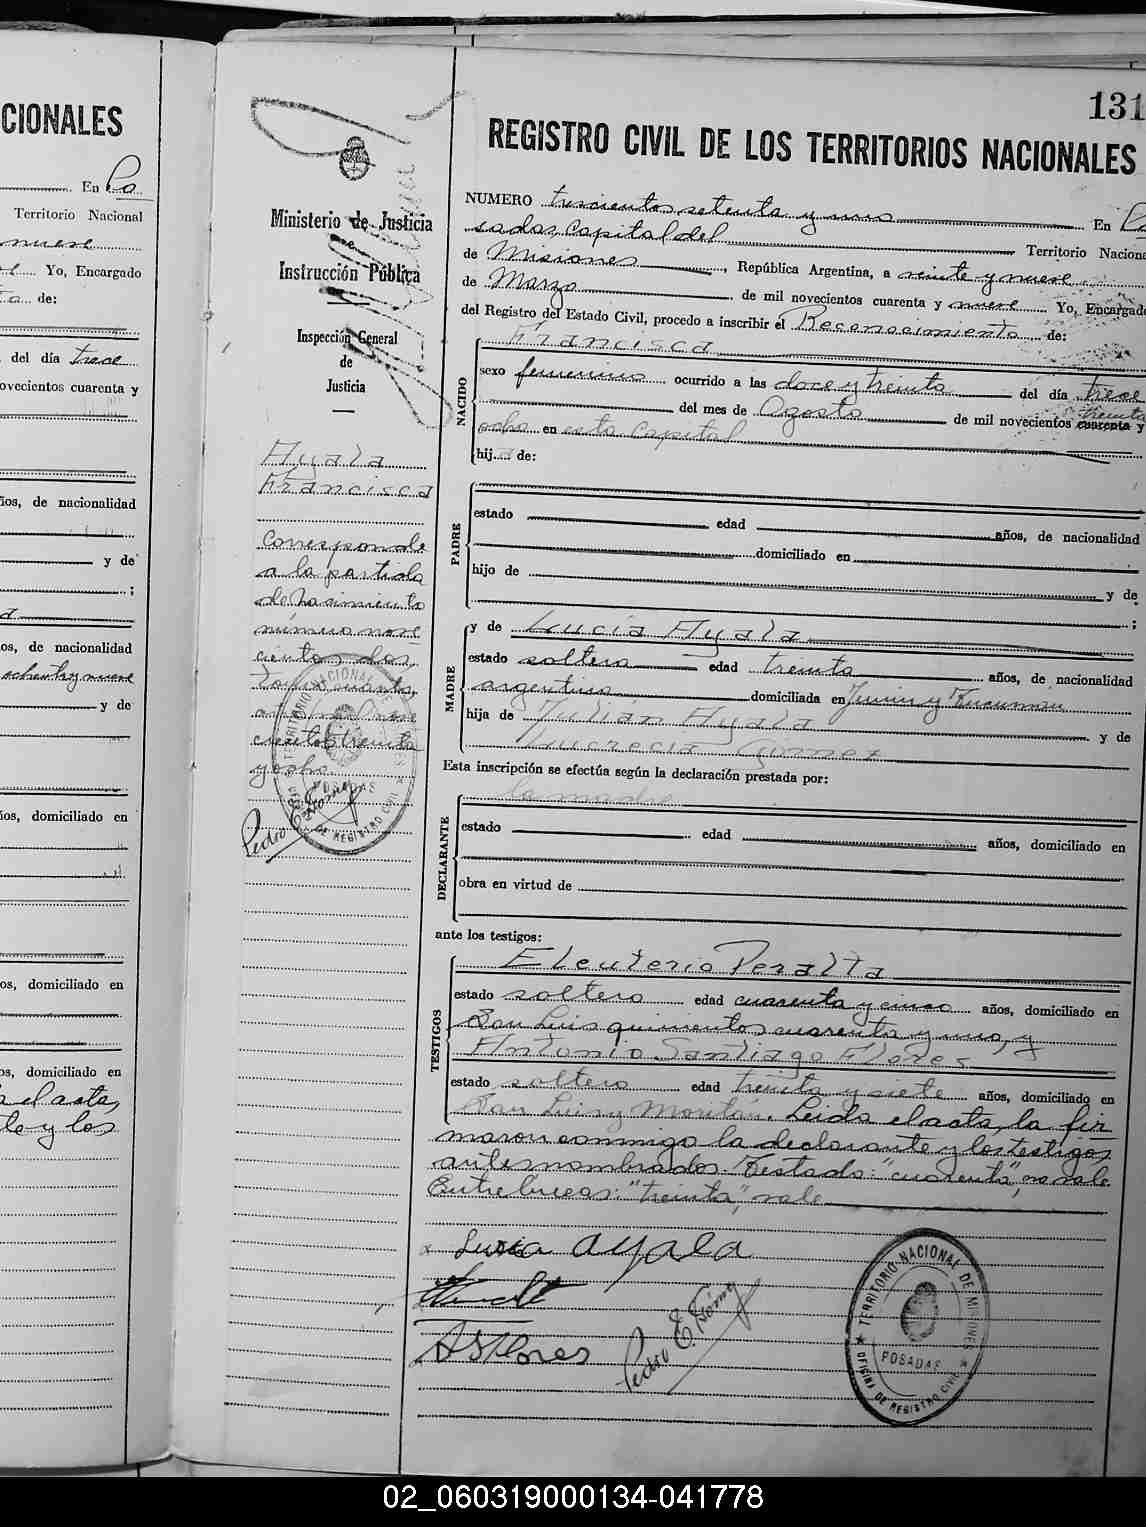 CIONALES
En Po
Territorio Nacional
nueve
Yo, Encargado
de:
del día trece
ovecientos cuarenta y
ños, de nacionalidad
y de
;
os, de nacionalidad
ochenta y nueve
y de
ños, domiciliado en
os, domiciliado en
os, domiciliado en
el acta,
te y los
131
Ministerio de Justicia
e
Instrucción Pública
Inspección General
de
Justicia
Ayala
Francisca
Corresponde
a la partida
de nacimiento
número nove
cientos dos,
Tomo cuarto,
año mil nove
cientos treinta
y ocho.
Pedro E. Gómez
REGISTRO CIVIL DE LOS TERRITORIOS NACIONALES
NUMERO trescientos setenta y uno En Po
sadas, Capital del Territorio Naciona
de Misiones, República Argentina, a veinte y nueve
de Marzo de mil novecientos cuarenta y nueve Yo, Encargado
del Registro del Estado Civil, procedo a inscribir el Reconocimiento de:
Francisca
NACIDO
sexo femenino ocurrido a las doce y treinta del día trece
treinta
del mes de Agosto de mil novecientos cuarenta y
ocho en esta Capital
hija de:
PADRE
estado edad años, de nacionalidad
domiciliado en
hijo de y de
;
MADRE
y de Lucía Ayala
estado soltera edad treinta años, de nacionalidad
argentina domiciliada en Junin y Tucumán
hija de Julián Ayala y de
Lucrecia Gómez
Esta inscripción se efectúa según la declaración prestada por:
la madre
DECLARANTE
estado edad años, domiciliado en
obra en virtud de
ante los testigos:
TESTIGOS
Eleuterio Peralta
estado soltero edad cuarenta y cinco años, domiciliado en
San Luis quinientos cuarenta y uno, y
Antonio Santiago Flores
estado soltero edad treinta y siete años, domiciliado en
San Luis y Moritán. Leida el acta, la fir
maron conmigo la declarante y los testigos
antes nombrados. Testado: "cuarenta", no vale
Entre líneas: "treinta", vale
x Lucia ayala
ASFlores
Pedro E. Gómez
TERRITORIO NACIONAL DE MISIONES
POSADAS
OFICINA DE REGISTRO CIVIL
02_060319000134-041778